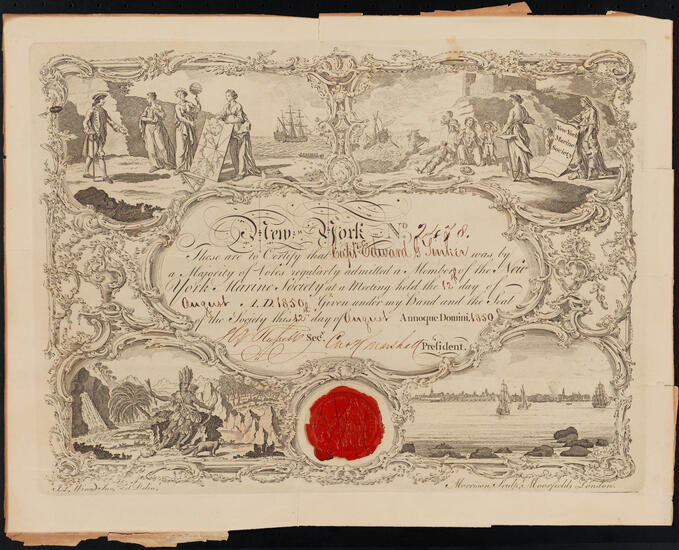 New York
Marine
Society
New York No. 2478.
These are to Certify that Capt. Edward G Tinker was by
a Majority of Votes regularly admitted a Member of the New
York Marine Society at a Meeting held the 12th day of
August A.D. 1850 Given under my Hand and the Seal
of the Society this 12th day of August Annoque Domini, 1850
Secy.
Marshall President.
Morrison Sculpt. Moorfields London.